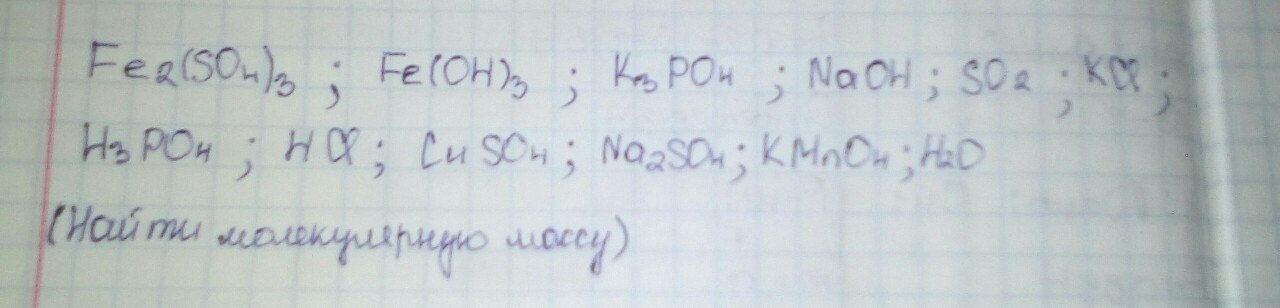 Fe2(SO4)3 ; Fe(OH)3 ; K3PO4 ; NaOH ; SO2 ; KCl ;
H3PO4 ; HCl ; CuSO4 ; Na2SO4 ; KMnO4 ; H2O
(Найти молекулярную массу)